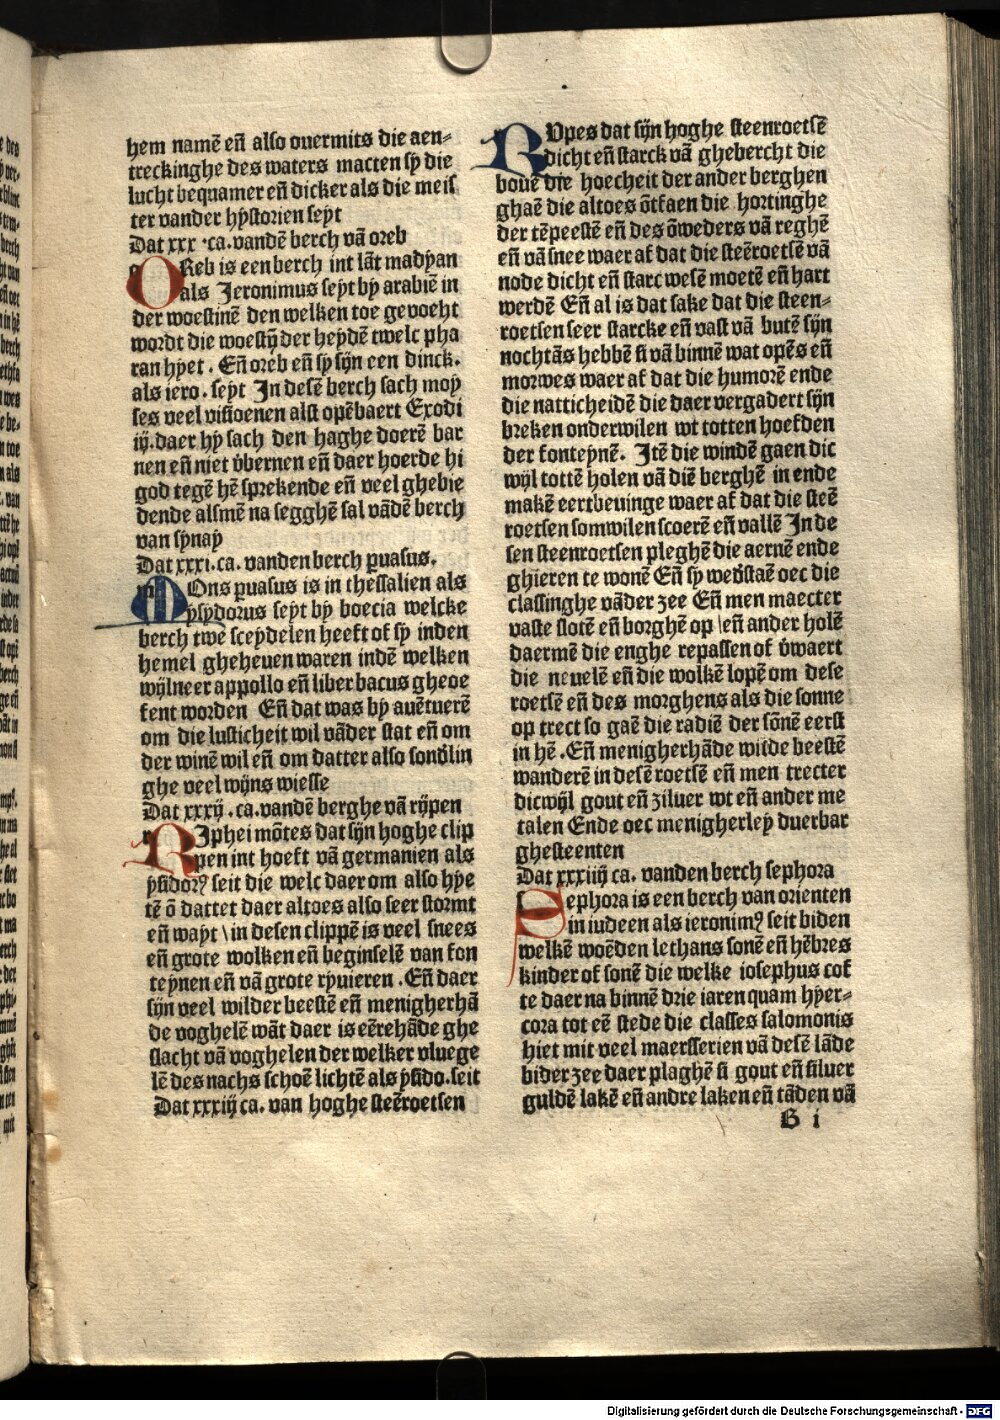 hem namē en̄ also ouermits die aen⸗
treckinghe des waters macten sy die
lucht bequamer en̄ dicker als die meis
ter vander hẏstorien seẏt
Dat xxx .ca. vandē berch vā oreb
OReb is een berch int lāt madẏan
als Jeronimus seẏt bẏ arabiē in
der woestinē den welken toe gevoeht
wordt die woestẏ̄ der heẏdē twelc pha
ran hẏet . En̄ oreb en̄ sẏ sẏn een dinck.
als iero . seẏt In desē berch sach moẏ
ses veel visioenen alst opēbaert Exodi
iij. daer hẏ sach den haghe doerē bar
nen en̄ niet v̄bernen en̄ daer hoerde hi
god tegē hē sprekende en̄ veel ghebie
dende alsmē na segghē sal vādē berch
van sẏnaẏ
Dat xxxi. ca. vanden berch ꝑuasus.
MOns ꝑuasus is in thessalien als
ẏsẏdorus seẏt bẏ boecia welcke
berch twe sceẏdelen heeft of sẏ inden
hemel gheheuen waren indē welken
wijlneer appollo en̄ liber bacus gheoe
fent worden En̄ dat was bẏ auētuerē
om die lusticheit wil vāder stat en̄ om
der winē wil en̄ om datter also sond̄lin
ghe veel wijns wiesse
Dat xxxij . ca. vandē berghe vā rijpen
RJphei mōtes dat sijn hoghe clip
pen int hoeft vā germanien als
ẏsidorꝰ seit die welc daer om also hẏe
tē ō dattet daer altoes also seer stormt
en̄ waẏt \ in desen clippē is veel snees
en̄ grote wolken en̄ beginselē van fon
teẏnen en̄ vā grote rẏuieren . En̄ daer
sijn veel wilder beestē en̄ menigherhā
de voghelē wāt daer is eērehāde ghe
slacht vā voghelen der welker vluege
lē des nachs schoē lichtē als ẏsido. seit
Dat xxxiij ca. van hoghe steēroetsen
RUpes dat sijn hoghe steenroetsē
dicht en̄ starck vā ghebercht die
bouē die hoecheit der ander berghen
ghaē die altoes ōtfaen die hortinghe
der tēpeestē en̄ des ōweders vā reghē
en̄ vā snee waer af dat die steēroetsē vā
node dicht en̄ starc wesē moetē en̄ hart
werdē En̄ al is dat sake dat die steen⸗
roetsen seer starcke en̄ vast vā butē sijn
nochtās hebbē si vā binnē wat opēs en̄
morwes waer af dat die humorē ende
die natticheidē die daer vergadert sijn
breken onderwilen wt totten hoefden
der fonteẏnē. Jtē die windē gaen dic
wijl tottē holen vā diē berghē in ende
makē eertbeuinge waer af dat die steē
roetsen somwilen scoerē en̄ vallē In de
sen steenroetsen pleghē die aernē ende
ghieren te wonē En̄ sẏ wed̄staē oec die
classinghe vāder zee En̄ men maecter
vaste slotē en̄ borghē op \ en̄ ander holē
daermē die enghe repassen of v̄waert
die neuelē en̄ die wolkē lopē om dese
roetsē en̄ des morghens als die sonne
op trect so gaē die radiē der sōnē eerst
in hē . En̄ menigherhāde wilde beestē
wanderē in desē roetsē en̄ men trecter
dicwijl gout en̄ ziluer wt en̄ ander me
talen Ende oec menigherleẏ duerbar
ghesteenten
Dat xxxiiij ca. vanden berch sephora
Sephora is een berch van orienten
in iudeen als ieronimꝰ seit biden
welkē woēden lethans sonē en̄ hēbres
kinder of sonē die welke iosephus cof
te daer na binnē drie iaren quam hẏer⸗
cora tot eē stede die classes salomonis
hiet mit veel maersserien vā desē lāde
bider zee daer plaghē si gout en̄ siluer
guldē lakē en̄ andre laken en̄ tāden vā
B i
Digitalisierung gefördert durch die Deutsche Forschungsgemeinschaft - DFG